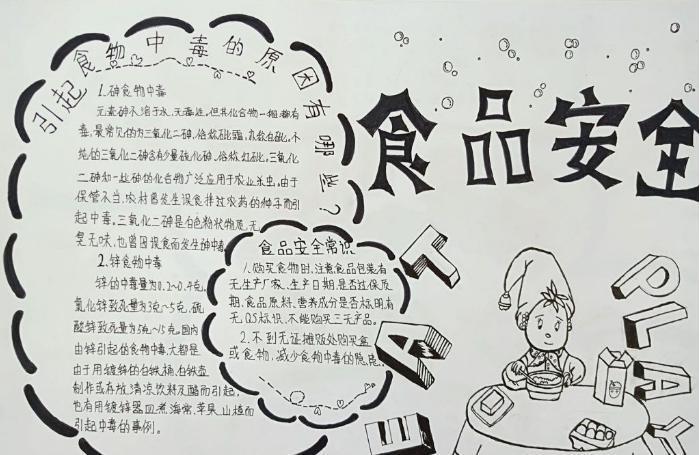 引起食物中毒的原因有哪些?
1.砷食物中毒
元素砷不溶于水,无毒性。但其化合物一般都有
毒,最常见的为三氧化二砷,俗称砒霜,亦称白砒。不
纯的三氧化二砷含有少量硫化砷,俗称红砒。三氧化
二砷和一些砷的化合物广泛应用于农业杀虫。由于
保管不当,农村曾发生误食拌过农药的种子而引
起中毒。三氧化二砷是白色粉状物质,无
臭无味,也曾因误食而发生砷中毒
2.锌食物中毒
锌的中毒量为0.2~0.4克。
氯化锌致死量为3克~5克,硫
酸锌致死量为5克~15克。国内
由锌引起的食物中毒,大都是
由于用镀锌的白铁桶,白铁壶
制作或存放清凉饮料及醋而引起,
也有用镀锌器皿煮海棠、苹果、山楂而
引起中毒的事例。
食品安全常识
1.购买食物时,注意食品包装有
无生产厂家、生产日期,是否过保质
期,食品原料、营养成分是否标明,有
无QS标识,不能购买三无产品。
2.不到无证摊贩处购买盒
或食物,减少食物中毒的隐患。
食品安全
EAT
PLAY